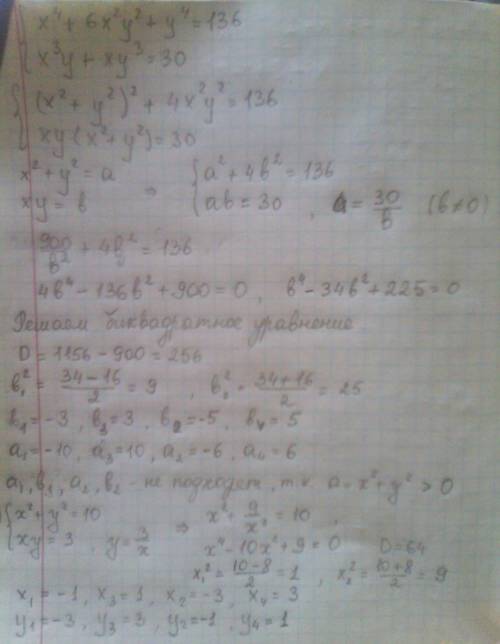 { x⁴ + 6x²y² + y⁴ = 136
x³y + xy³ = 30
{ (x² + y²)² + 4x²y² = 136
xy(x² + y²) = 30
x² + y² = a ⇒ { a² + 4b² = 136
xy = b ab = 30 , a = 30/b (b≠0)
900/b² + 4b² = 136
4b⁴ - 136b² + 900 = 0 , b⁴ - 34b² + 225 = 0
Решаем биквадратное уравнение
D = 1156 - 900 = 256
b₁² = (34-16)/2 = 9 , b₂² = (34+16)/2 = 25
b₁ = -3 , b₃ = 3 , b₂ = -5 , b₄ = 5
a₁ = -10 , a₃ = 10 , a₂ = -6 , a₄ = 6
a₁, b₁, a₂, b₂ - не подходят, т.к. a = x² + y² > 0
{ x² + y² = 10 ⇒ x² + 9/x² = 10 ,
xy = 3 , y = 3/x x⁴ - 10x² + 9 = 0 D = 64
x₁² = (10-8)/2 = 1 , x₂² = (10+8)/2 = 9
x₁ = -1 , x₃ = 1 , x₂ = -3 , x₄ = 3
y₁ = -3 , y₃ = 3 , y₂ = -1 , y₄ = 1